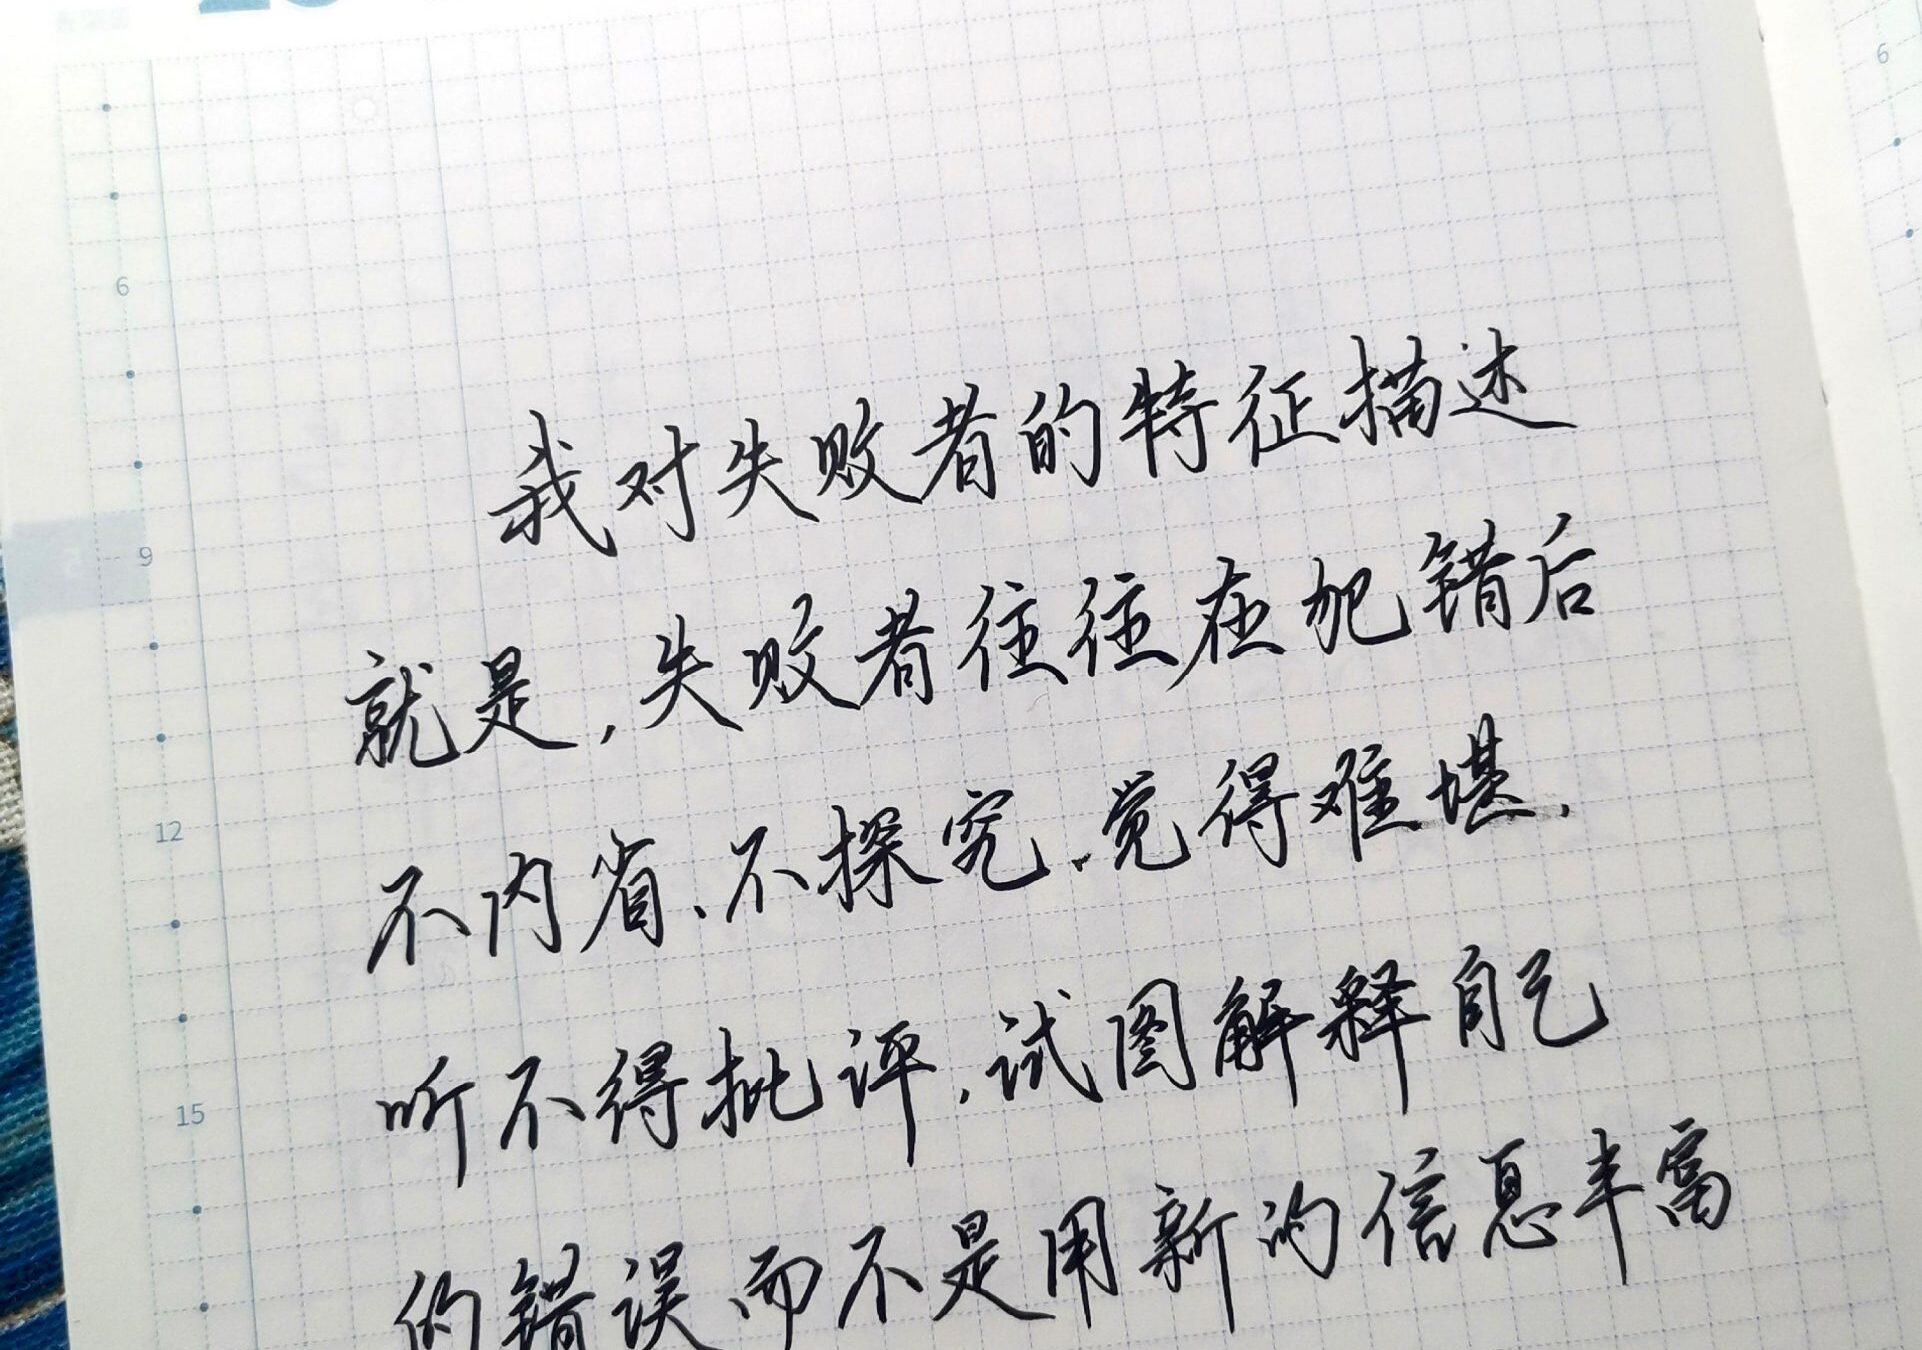 我对失败者的特征描述
就是，失败者往往在犯错后
不内省、不探究，觉得难堪，
听不得批评，试图解释自己
的错误，而不是用新的信息丰富
6
9
12
15
6